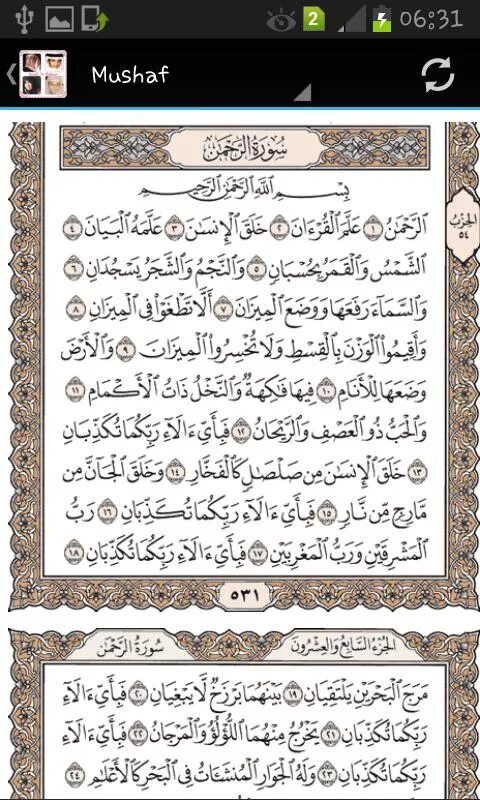 2
06:31
Mushaf
سُورَةُ الرَّحْمَٰن
بِسْمِ اللَّهِ الرَّحْمَٰنِ الرَّحِيمِ
الرَّحْمَٰنُ ١ عَلَّمَ الْقُرْءَانَ ٢ خَلَقَ الْإِنسَٰنَ ٣ عَلَّمَهُ الْبَيَانَ ٤
الشَّمْسُ وَالْقَمَرُ بِحُسْبَانٍ ٥ وَالنَّجْمُ وَالشَّجَرُ يَسْجُدَانِ ٦
وَالسَّمَآءَ رَفَعَهَا وَوَضَعَ الْمِيزَانَ ٧ أَلَّا تَطْغَوْا۟ فِى الْمِيزَانِ ٨
وَأَقِيمُوا۟ الْوَزْنَ بِالْقِسْطِ وَلَا تُخْسِرُوا۟ الْمِيزَانَ ٩ وَالْأَرْضَ
وَضَعَهَا لِلْأَنَامِ ١٠ فِيهَا فَٰكِهَةٌ وَالنَّخْلُ ذَاتُ الْأَكْمَامِ ١١
وَالْحَبُّ ذُو الْعَصْفِ وَالرَّيْحَانُ ١٢ فَبِأَىِّ ءَالَآءِ رَبِّكُمَا تُكَذِّبَانِ
١٣ خَلَقَ الْإِنسَٰنَ مِن صَلْصَٰلٍ كَالْفَخَّارِ ١٤ وَخَلَقَ الْجَآنَّ مِن
مَّارِجٍ مِّن نَّارٍ ١٥ فَبِأَىِّ ءَالَآءِ رَبِّكُمَا تُكَذِّبَانِ ١٦ رَبُّ
الْمَشْرِقَيْنِ وَرَبُّ الْمَغْرِبَيْنِ ١٧ فَبِأَىِّ ءَالَآءِ رَبِّكُمَا تُكَذِّبَانِ ١٨
الحِزْبُ
٥٤
٥٣١
الجُزْءُ السَّابِعُ وَالعِشْرُونَ
سُورَةُ الرَّحْمَٰن
مَرَجَ الْبَحْرَيْنِ يَلْتَقِيَانِ ١٩ بَيْنَهُمَا بَرْزَخٌ لَّا يَبْغِيَانِ ٢٠ فَبِأَىِّ ءَالَآءِ
رَبِّكُمَا تُكَذِّبَانِ ٢١ يَخْرُجُ مِنْهُمَا اللُّؤْلُؤُ وَالْمَرْجَانُ ٢٢ فَبِأَىِّ ءَالَآءِ
رَبِّكُمَا تُكَذِّبَانِ ٢٣ وَلَهُ الْجَوَارِ الْمُنشَـَٔاتُ فِى الْبَحْرِ كَالْأَعْلَٰمِ ٢٤